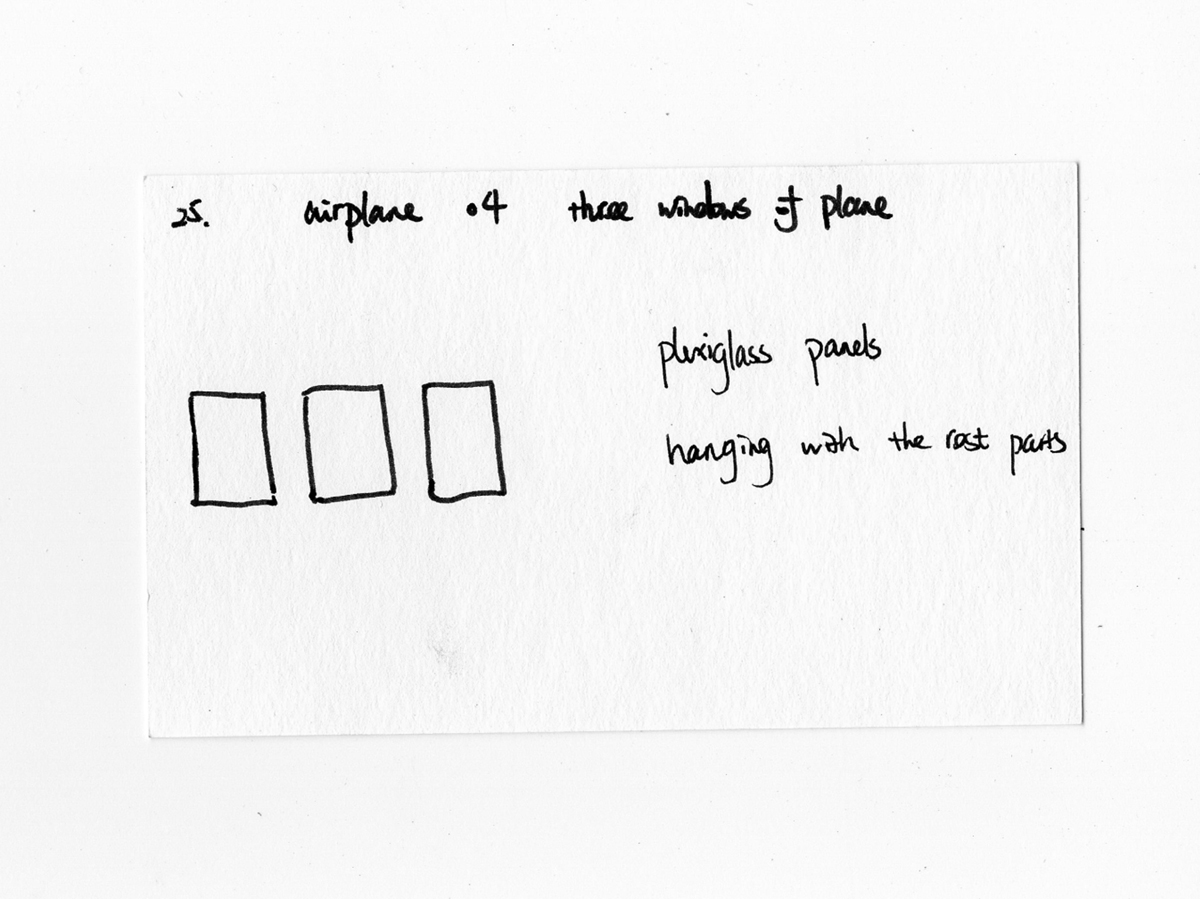 25. airplane .4 three windows of plane
plexiglass panels
hanging with the rest parts